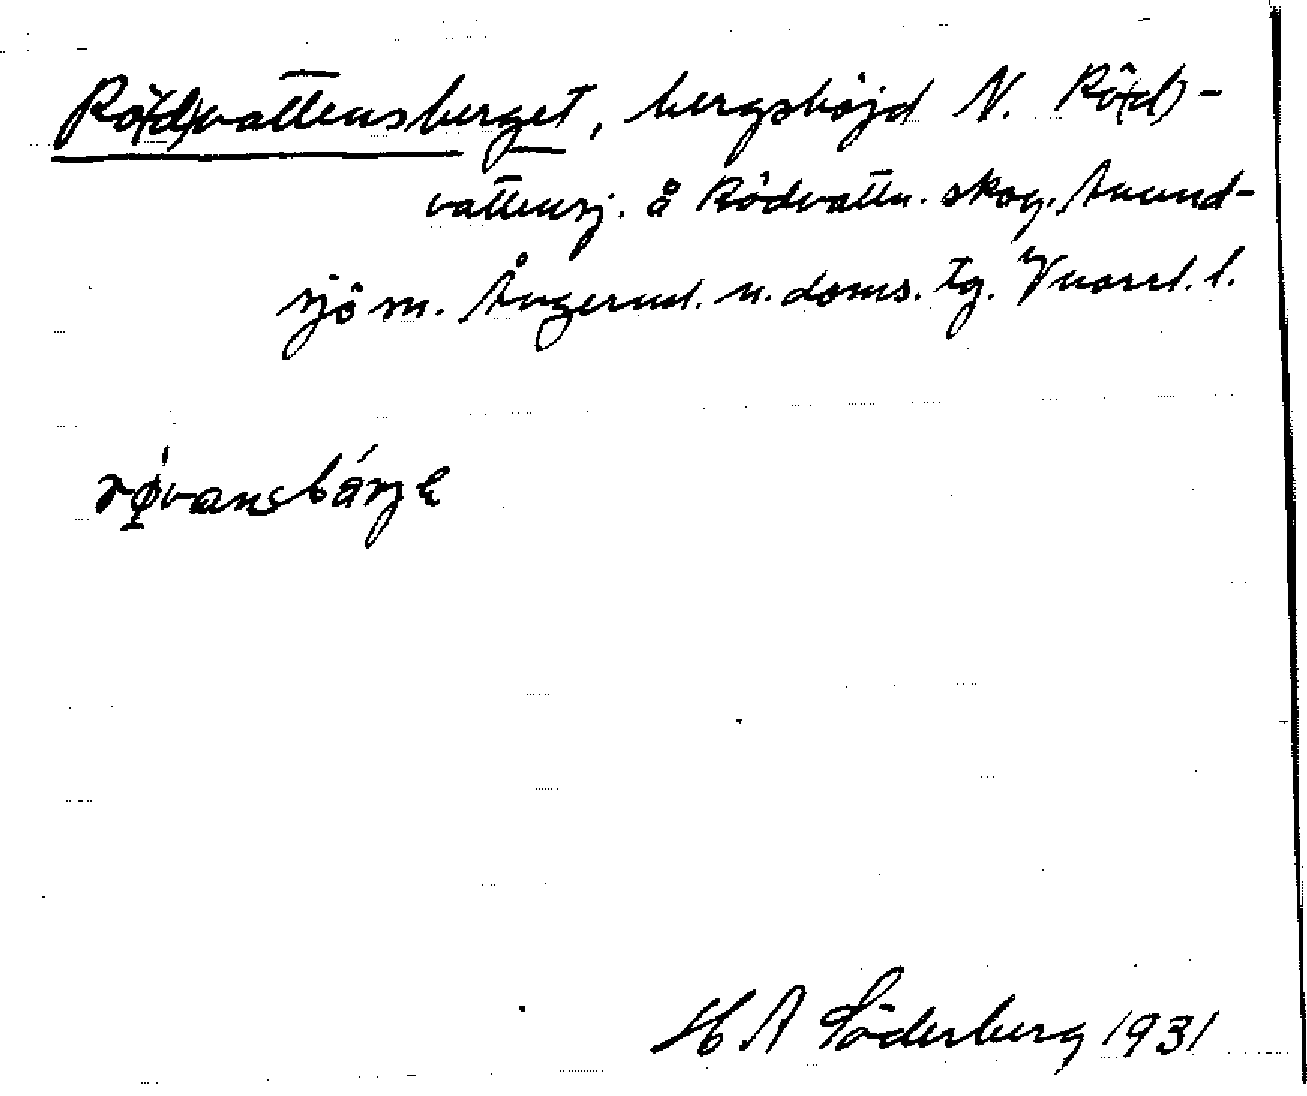 Rö(d)vattensberget, bergshöjd N. Rö(d)-
vattensj. å Rödvattn. skog. Anund-
sjö sn. Ångerml. n. doms. tg. Vnorrl. l.
rǿvansbárje
H A Söderberg 1931